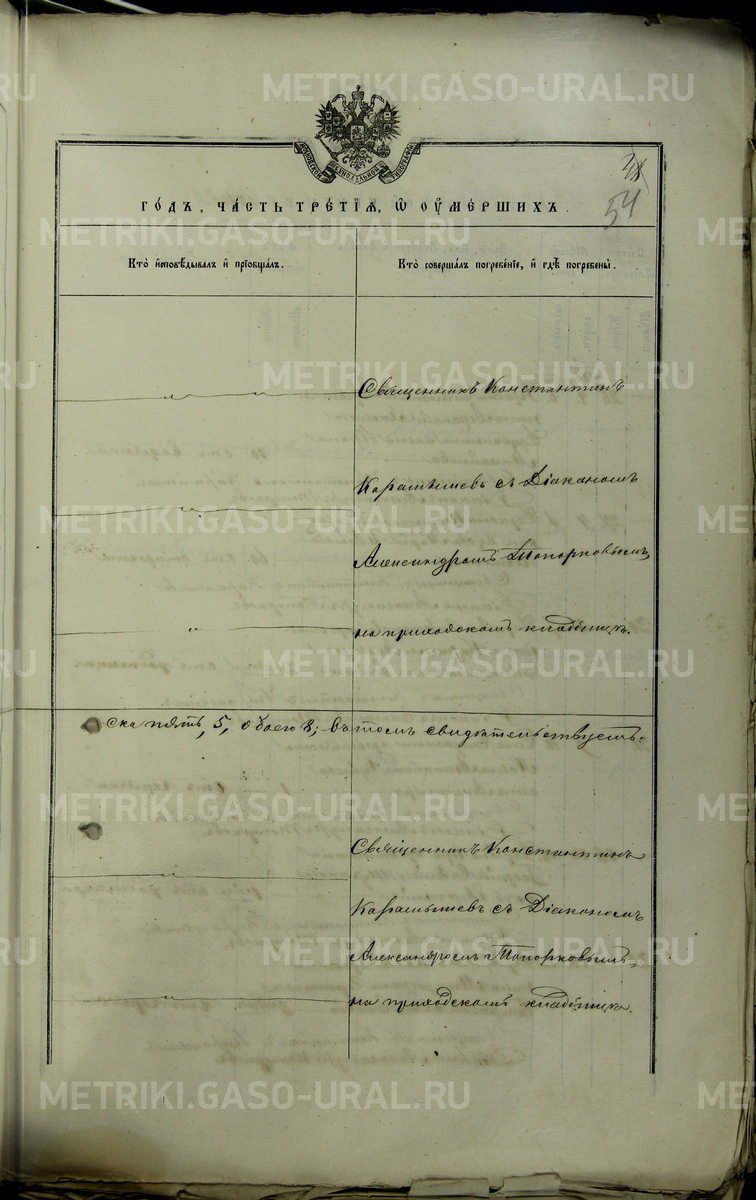 METRIKI.GASO-URAL.RU
54
го́дъ, ча́сть тре́тїѧ, ѡ҆ оу҆ме́ршихъ.
Кто̀ и҆сповѣ́дывалъ и҆ прїѡбща́лъ.
Кто̀ соверша́лъ погребе́нїе, и҆ гдѣ̀ погребены̀.
Священникъ Константинъ
Карамышевъ съ Діакономъ
Александромъ Топорковымъ,
на приходскомъ кладбищѣ.
ска пять, 5, обоего 8; Въ томъ свидѣтельствуемъ:
Священникъ Константинъ
Карамышевъ съ Діакономъ
Александромъ Топорковымъ,
на приходскомъ кладбищѣ.